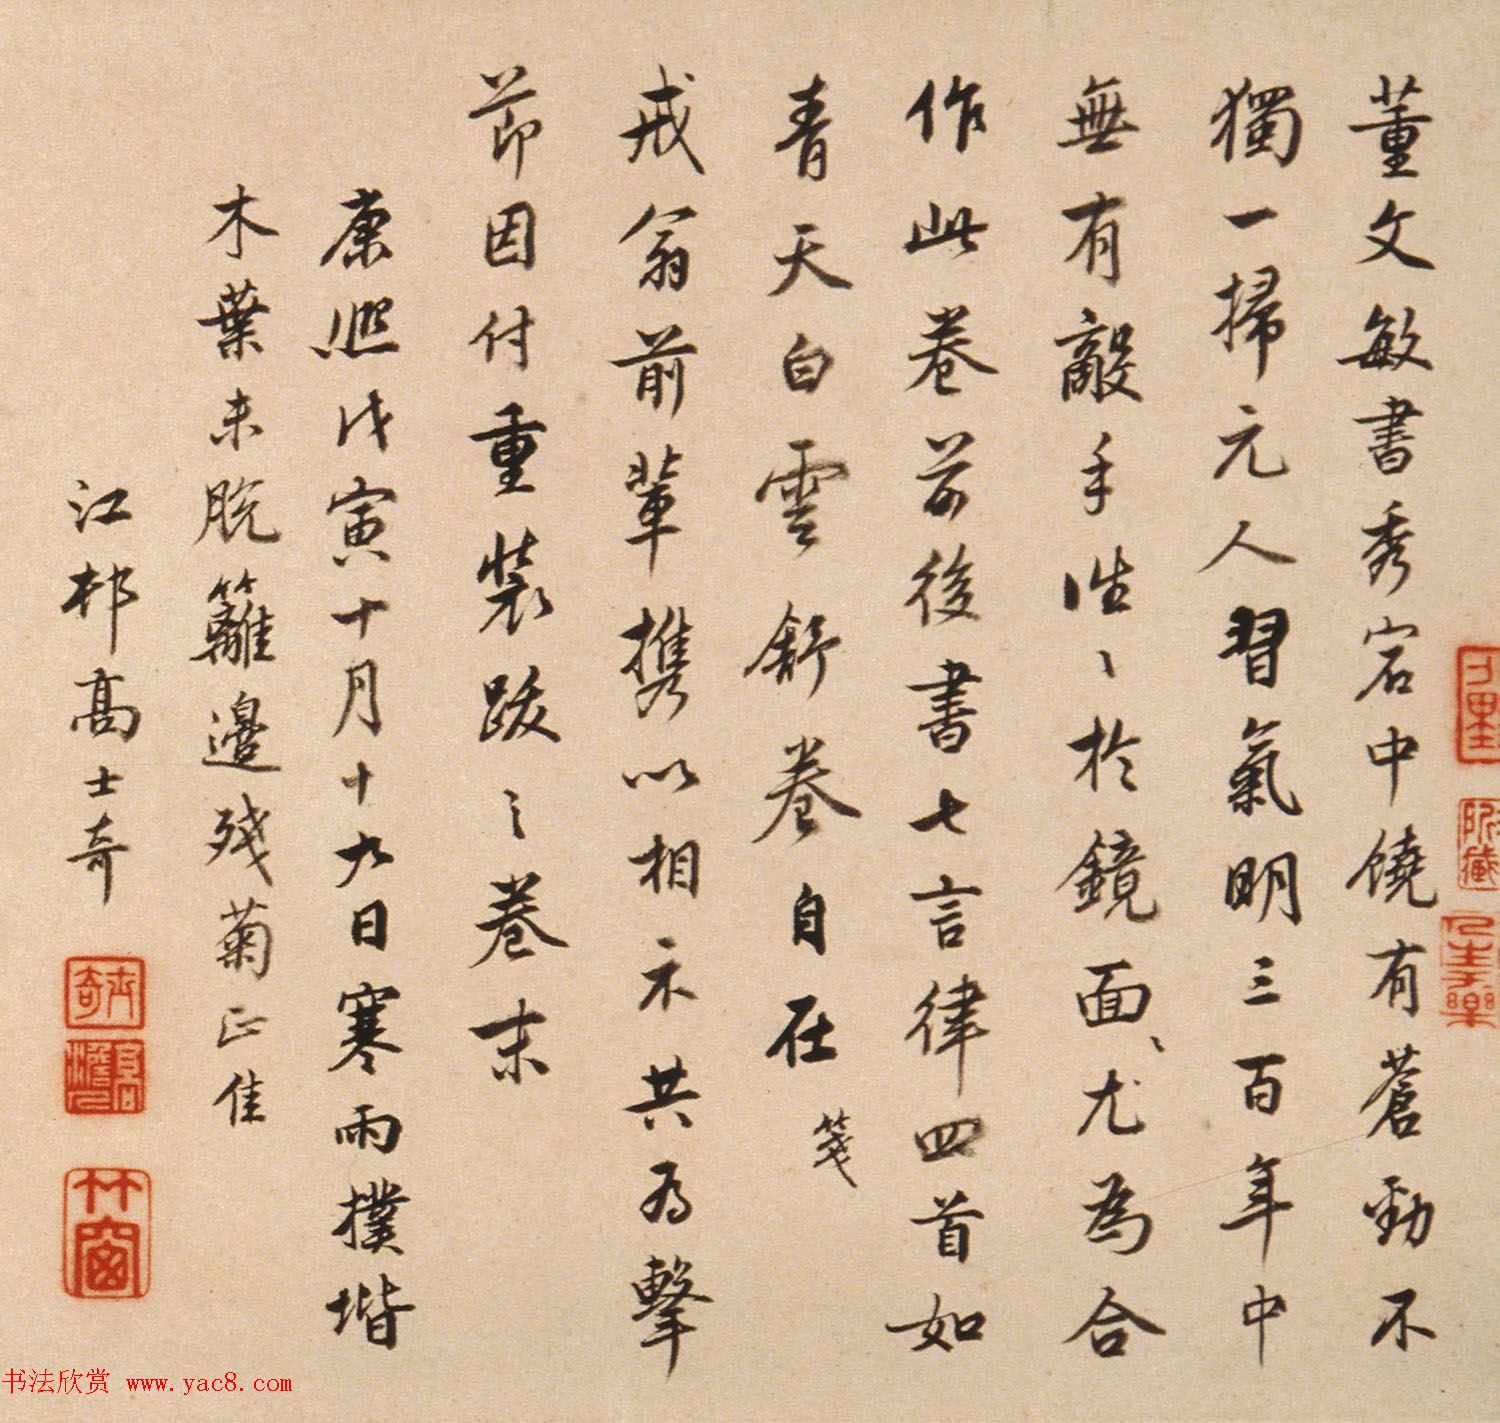 董文敏書秀宕中饒有蒼勁不
獨一掃元人習氣明三百年中
無有敵手性〻於鏡面〻尤為合
作此卷前後書七言律四首如
青天白雲舒卷自在
箋
戒翁前輩携以相示共為擊
節因付重裝跋之卷末
康熙戊寅十月十九日寒雨撲堦
木葉未脫籬邊殘菊正佳
江邨高士奇
士奇
高澹人
竹窗
书法欣赏 www.yac8.com